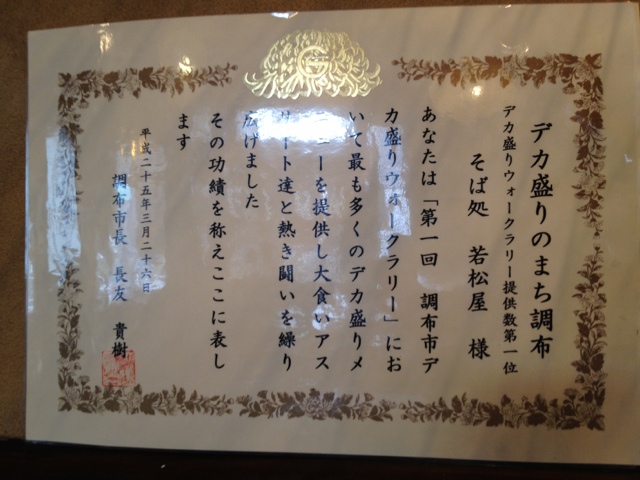 デカ盛りのまち調布
デカ盛りウォークラリー提供数第一位
そば処 若松屋 様
あなたは「第一回 調布市デ
カ盛りウォークラリー」にお
いて最も多くのデカ盛りメ
ニューを提供し大食いアス
リート達と熱き闘いを繰り
広げました
その功績を称えここに表し
ます
平成二十五年三月二十六日
調布市長 長友 貴樹